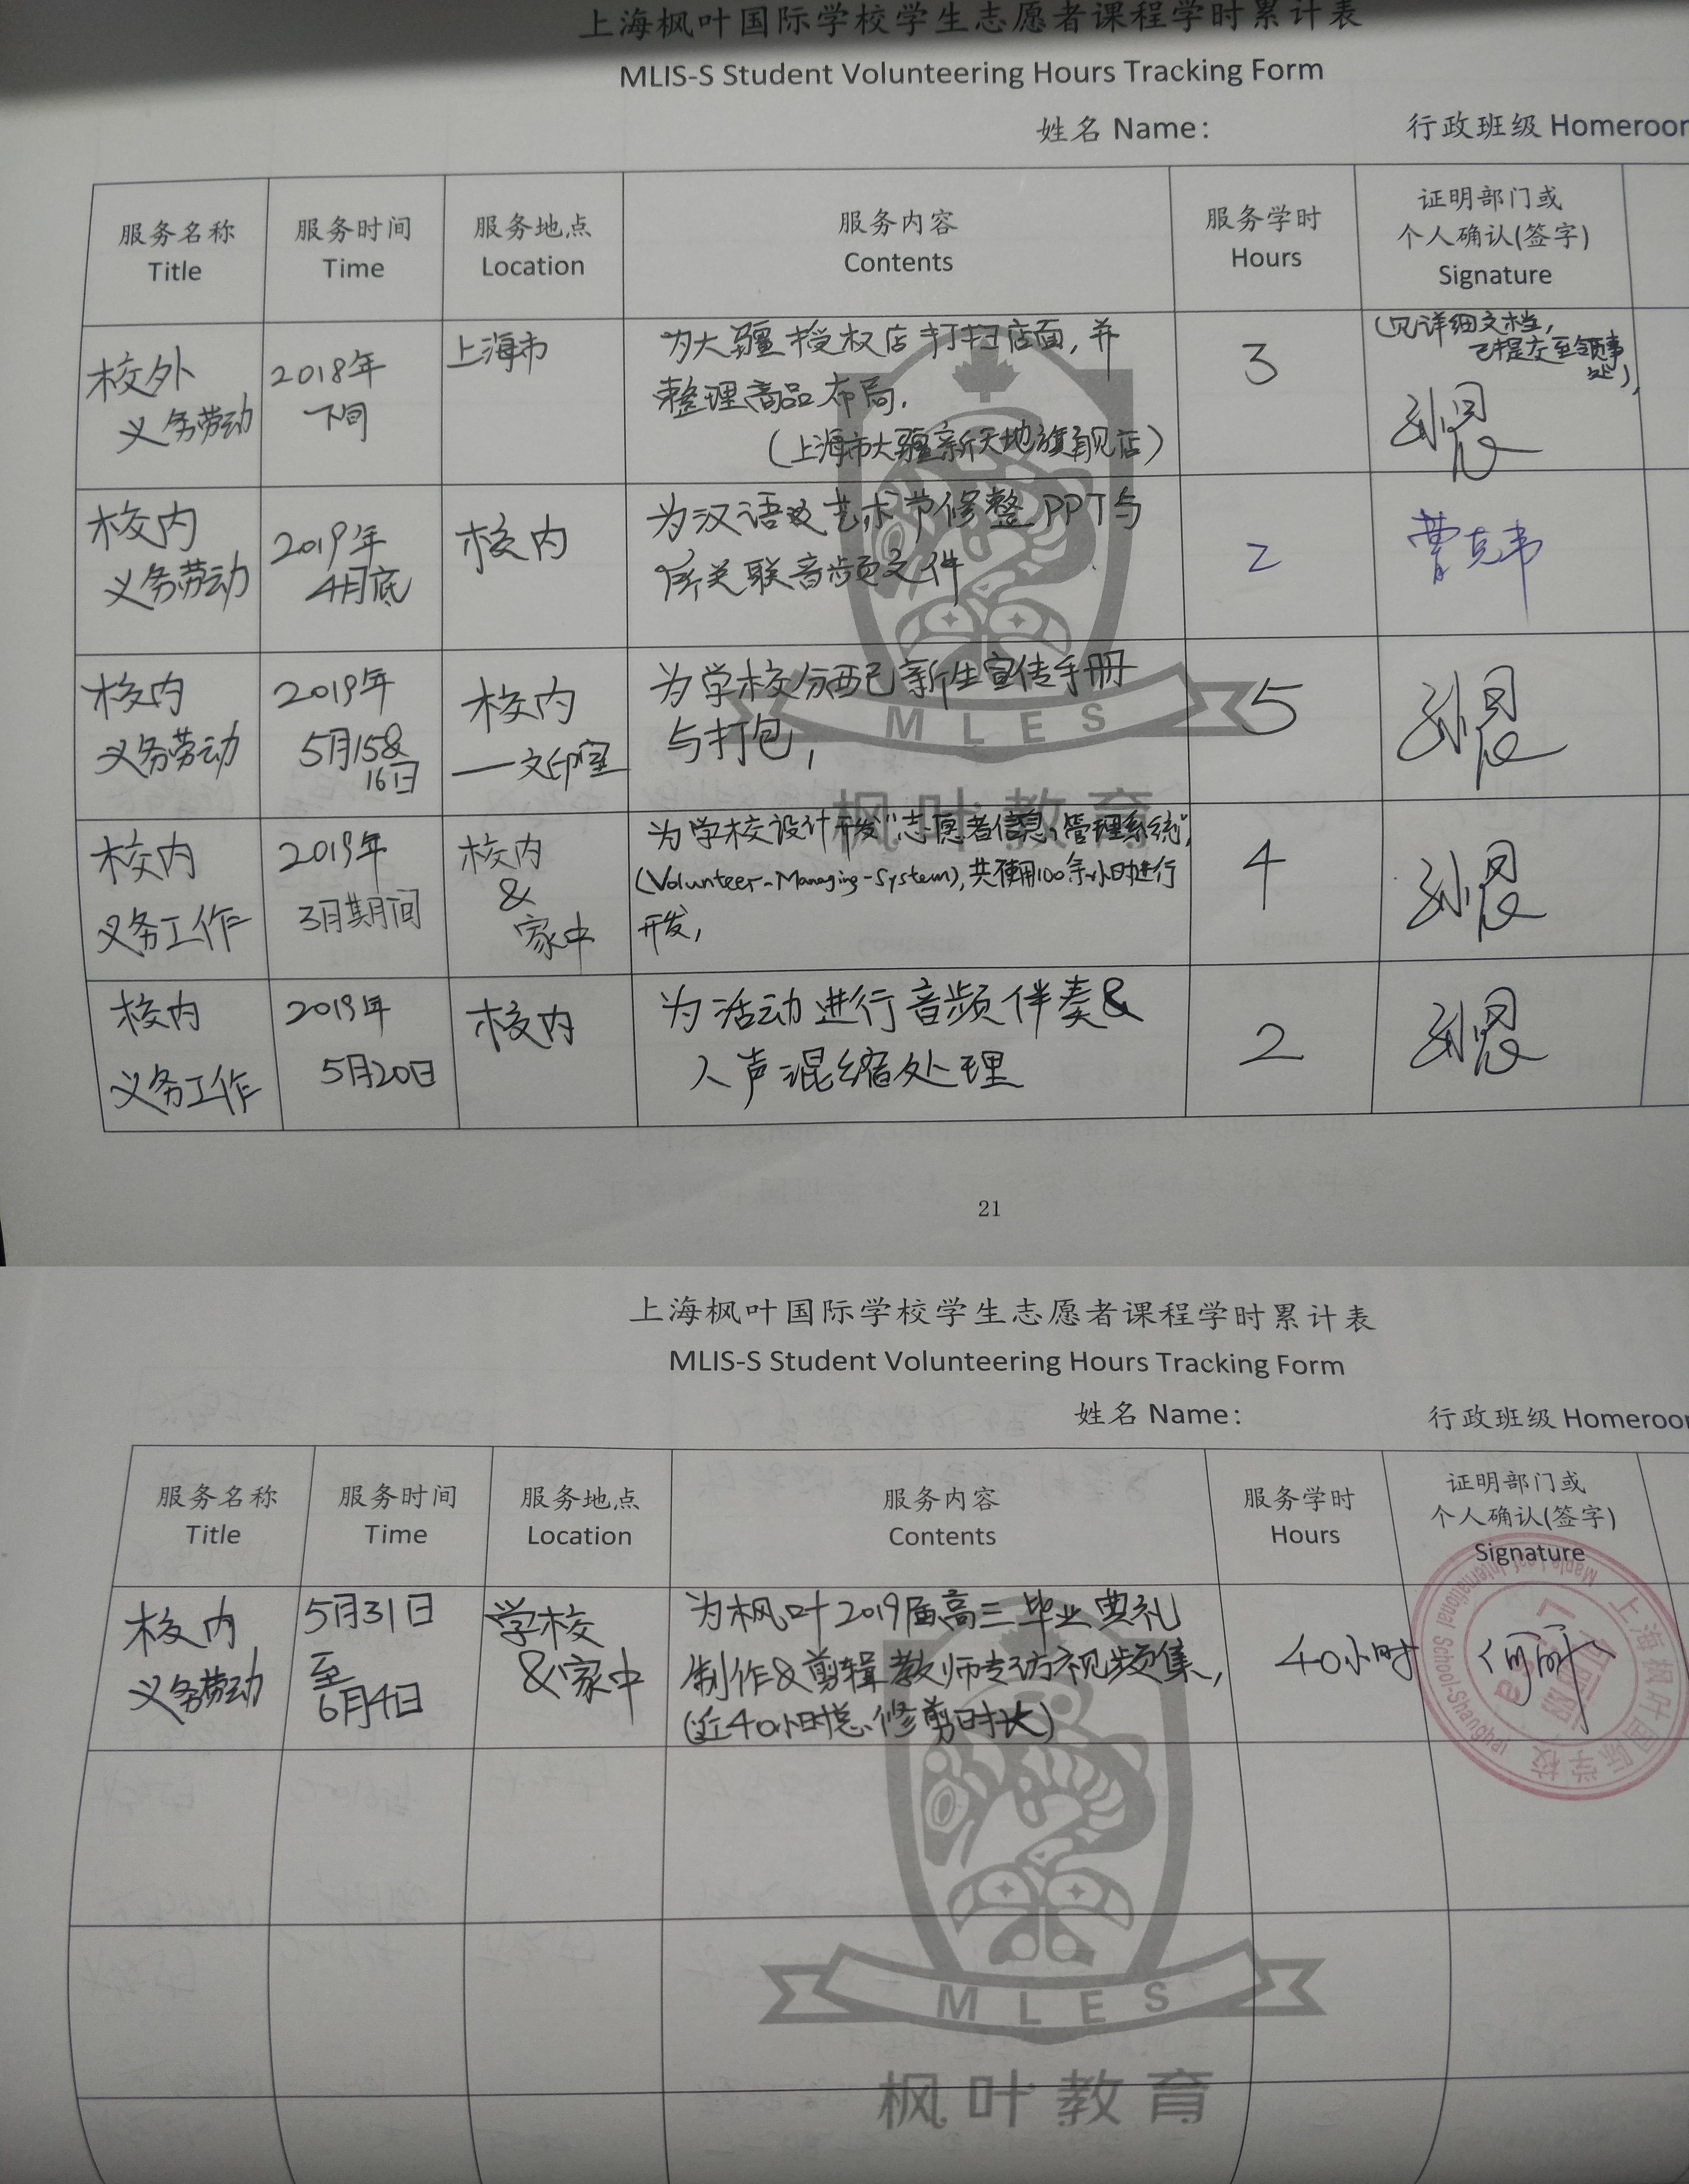 上海枫叶国际学校学生志愿者课程学时累计表
MLIS-S Student Volunteering Hours Tracking Form
姓名 Name：
行政班级 Homeroo
服务名称
Title
服务时间
Time
服务地点
Location
服务内容
Contents
服务学时
Hours
证明部门或
个人确认(签字)
Signature
校外
义务劳动
2018年
下旬
上海市
为大疆授权店打扫店面,并
整理商品布局.
(上海市大疆新天地旗舰店)
3
(见详细文档,
已提交至领事
处),
校内
义务劳动
2019年
4月底
校内
为汉语文艺术节修整PPT与
所关联音频文件
2
曹克韦
校内
义务劳动
2019年
5月15&
16日
校内
—文印室
为学校分配新生宣传手册
与打包,
5
校内
义务工作
2019年
3月期间
校内
&
家中
为学校设计开发"志愿者信息管理系统",
(Volunteer-Managing-System),共使用100余小时进行
开发,
4
校内
义务工作
2019年
5月20日
校内
为活动进行音频伴奏&
人声混缩处理
2
MLES
枫叶教育
21
上海枫叶国际学校学生志愿者课程学时累计表
MLIS-S Student Volunteering Hours Tracking Form
姓名 Name：
行政班级 Homeroo
服务名称
Title
服务时间
Time
服务地点
Location
服务内容
Contents
服务学时
Hours
证明部门或
个人确认(签字)
Signature
校内
义务劳动
5月31日
至
6月4日
学校
&家中
为枫叶2019届高三毕业典礼
制作&剪辑教师专访视频集,
(近40小时总修剪时长)
40小时
上海枫叶国际学校
Maple Leaf International School-Shanghai
MLES
枫叶教育